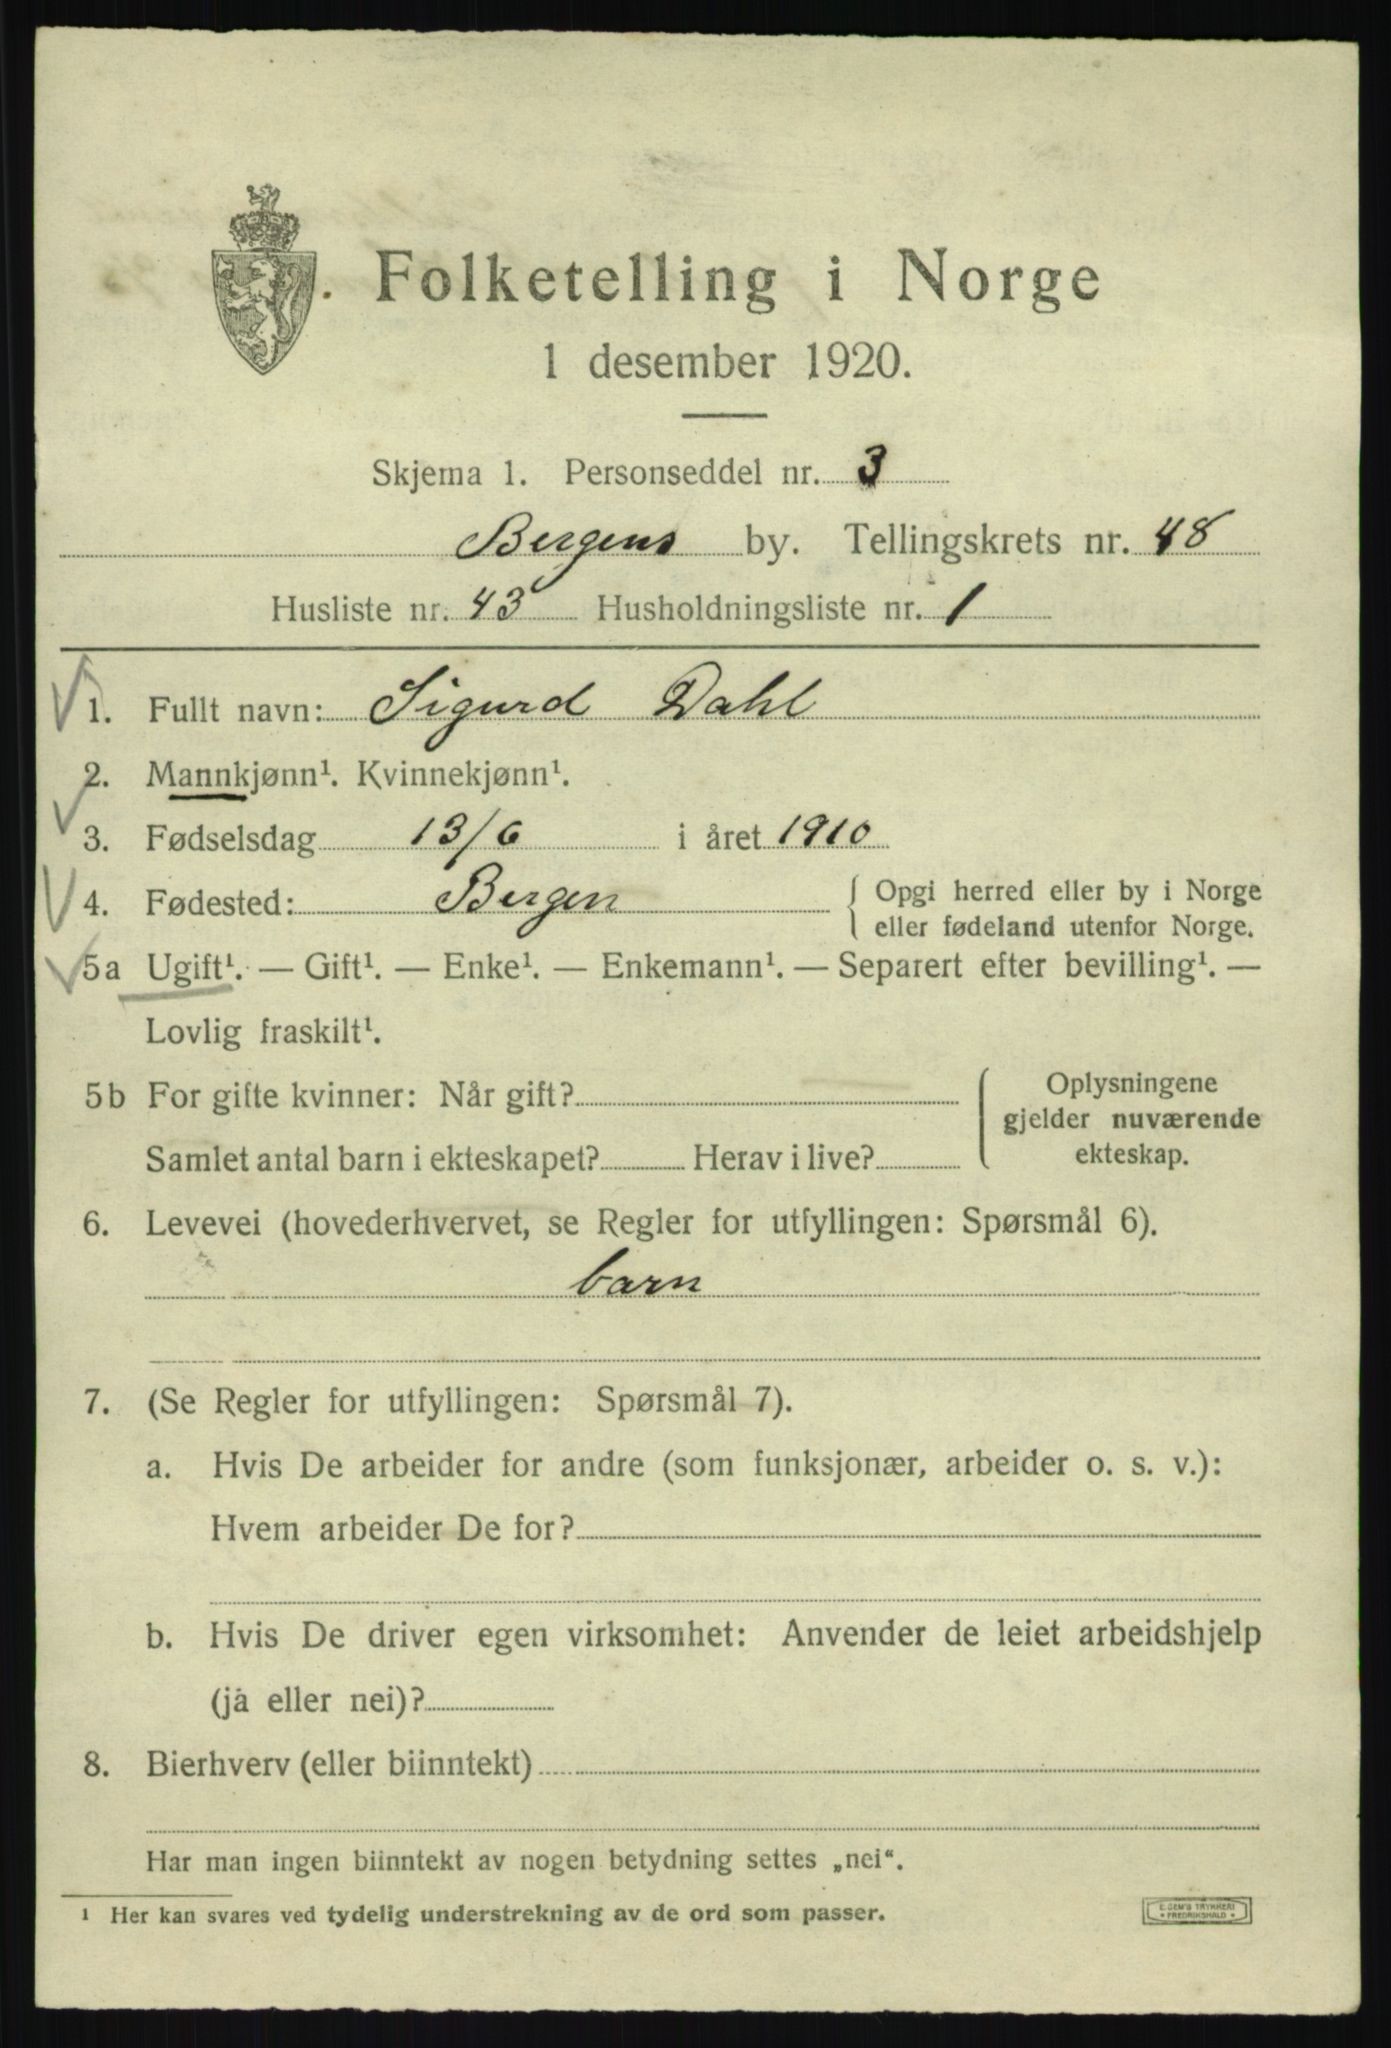 Folketelling i Norge
1 desember 1920.
Skjema 1. Personseddel nr. 3
Bergens by. Tellingskrets nr. 48
Husliste nr. 43 Husholdningsliste nr. 1
1. Fullt navn: Sigurd Dahl
2. Mannkjønn¹. Kvinnekjønn¹.
3. Fødselsdag 13/6 i året 1910
4. Fødested: Bergen { Opgi herred eller by i Norge
eller fødeland utenfor Norge.
5a Ugift¹. — Gift¹. — Enke¹. — Enkemann¹. — Separert efter bevilling¹. —
Lovlig fraskilt¹.
5b For gifte kvinner: Når gift? { Oplysningene
gjelder nuværende
Samlet antal barn i ekteskapet? Herav i live? ekteskap.
6. Levevei (hovederhvervet, se Regler for utfyllingen: Spørsmål 6).
barn
7. (Se Regler for utfyllingen: Spørsmål 7).
a. Hvis De arbeider for andre (som funksjonær, arbeider o. s. v.):
Hvem arbeider De for?
b. Hvis De driver egen virksomhet: Anvender de leiet arbeidshjelp
(ja eller nei)?
8. Bierhverv (eller biinntekt)
Har man ingen biinntekt av nogen betydning settes „nei“.
¹ Her kan svares ved tydelig understrekning av de ord som passer.
E. SEM'S TRYKKERI
* FREDRIKSHALD *